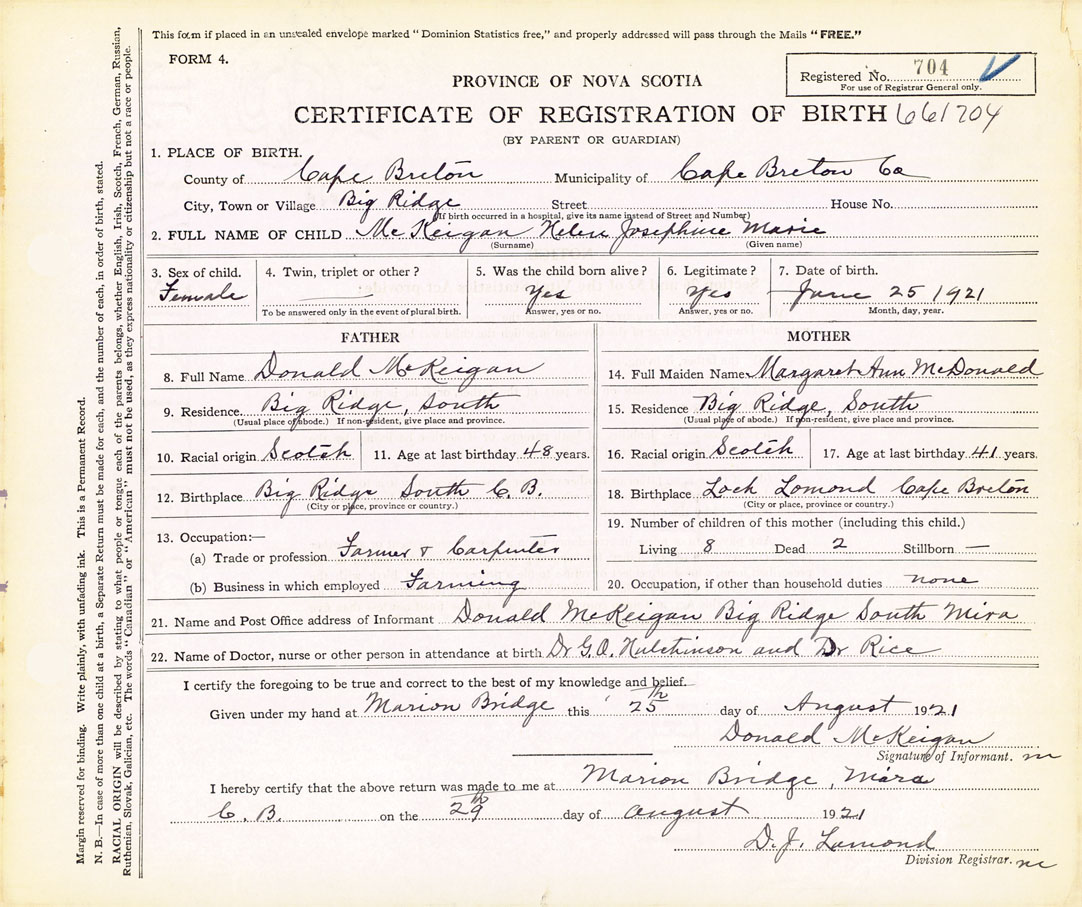 This form if placed in an unsealed envelope marked "Dominion Statistics free," and properly addressed will pass through the Mails "FREE."
FORM 4.
Registered No. 704
For use of Registrar General only.
PROVINCE OF NOVA SCOTIA
CERTIFICATE OF REGISTRATION OF BIRTH 661704
(BY PARENT OR GUARDIAN)
1. PLACE OF BIRTH.
County of Cape Breton Municipality of Cape Breton Co
City, Town or Village Big Ridge Street House No.
(If birth occurred in a hospital, give its name instead of Street and Number)
2. FULL NAME OF CHILD McKeigan Helen Josephine Marie
(Surname) (Given name)
3. Sex of child. 4. Twin, triplet or other? 5. Was the child born alive? 6. Legitimate? 7. Date of birth.
Female — Yes Yes June 25 1921
To be answered only in the event of plural birth. Answer, yes or no. Answer, yes or no. Month, day, year.
FATHER
8. Full Name Donald McKeigan
9. Residence. Big Ridge, South
(Usual place of abode.) If non-resident, give place and province.
10. Racial origin Scotch 11. Age at last birthday 48 years.
12. Birthplace Big Ridge South C. B.
(City or place, province or country.)
13. Occupation:—
(a) Trade or profession Farmer & Carpenter
(b) Business in which employed Farming
MOTHER
14. Full Maiden Name Margaret Ann McDonald
15. Residence Big Ridge, South
(Usual place of abode.) If non-resident, give place and province.
16. Racial origin Scotch 17. Age at last birthday 41 years.
18. Birthplace Loch Lomond Cape Breton
(City or place, province or country.)
19. Number of children of this mother (including this child.)
Living 8 Dead 2 Stillborn —
20. Occupation, if other than household duties none
21. Name and Post Office address of Informant Donald McKeigan Big Ridge South Mira
22. Name of Doctor, nurse or other person in attendance at birth Dr G.A. Hutchinson and Dr Rice
I certify the foregoing to be true and correct to the best of my knowledge and belief.
Given under my hand at Marion Bridge this 25th day of August 1921
Donald McKeigan
Signature of Informant.
I hereby certify that the above return was made to me at Marion Bridge, Mira
C. B. on the 29th day of August 1921
D. J. Lamond
Division Registrar.
Margin reserved for binding. Write plainly, with unfading ink. This is a Permanent Record.
N. B.—In case of more than one child at a birth, a Separate Return must be made for each, and the number of each, in order of birth, stated.
RACIAL ORIGIN will be described by stating to what people or tongue each of the parents belongs, whether English, Irish, Scotch, French, German, Russian,
Ruthenian, Slovak, Galician, etc. The words "Canadian" or "American" must not be used, as they express nationality or citizenship but not a race or people.